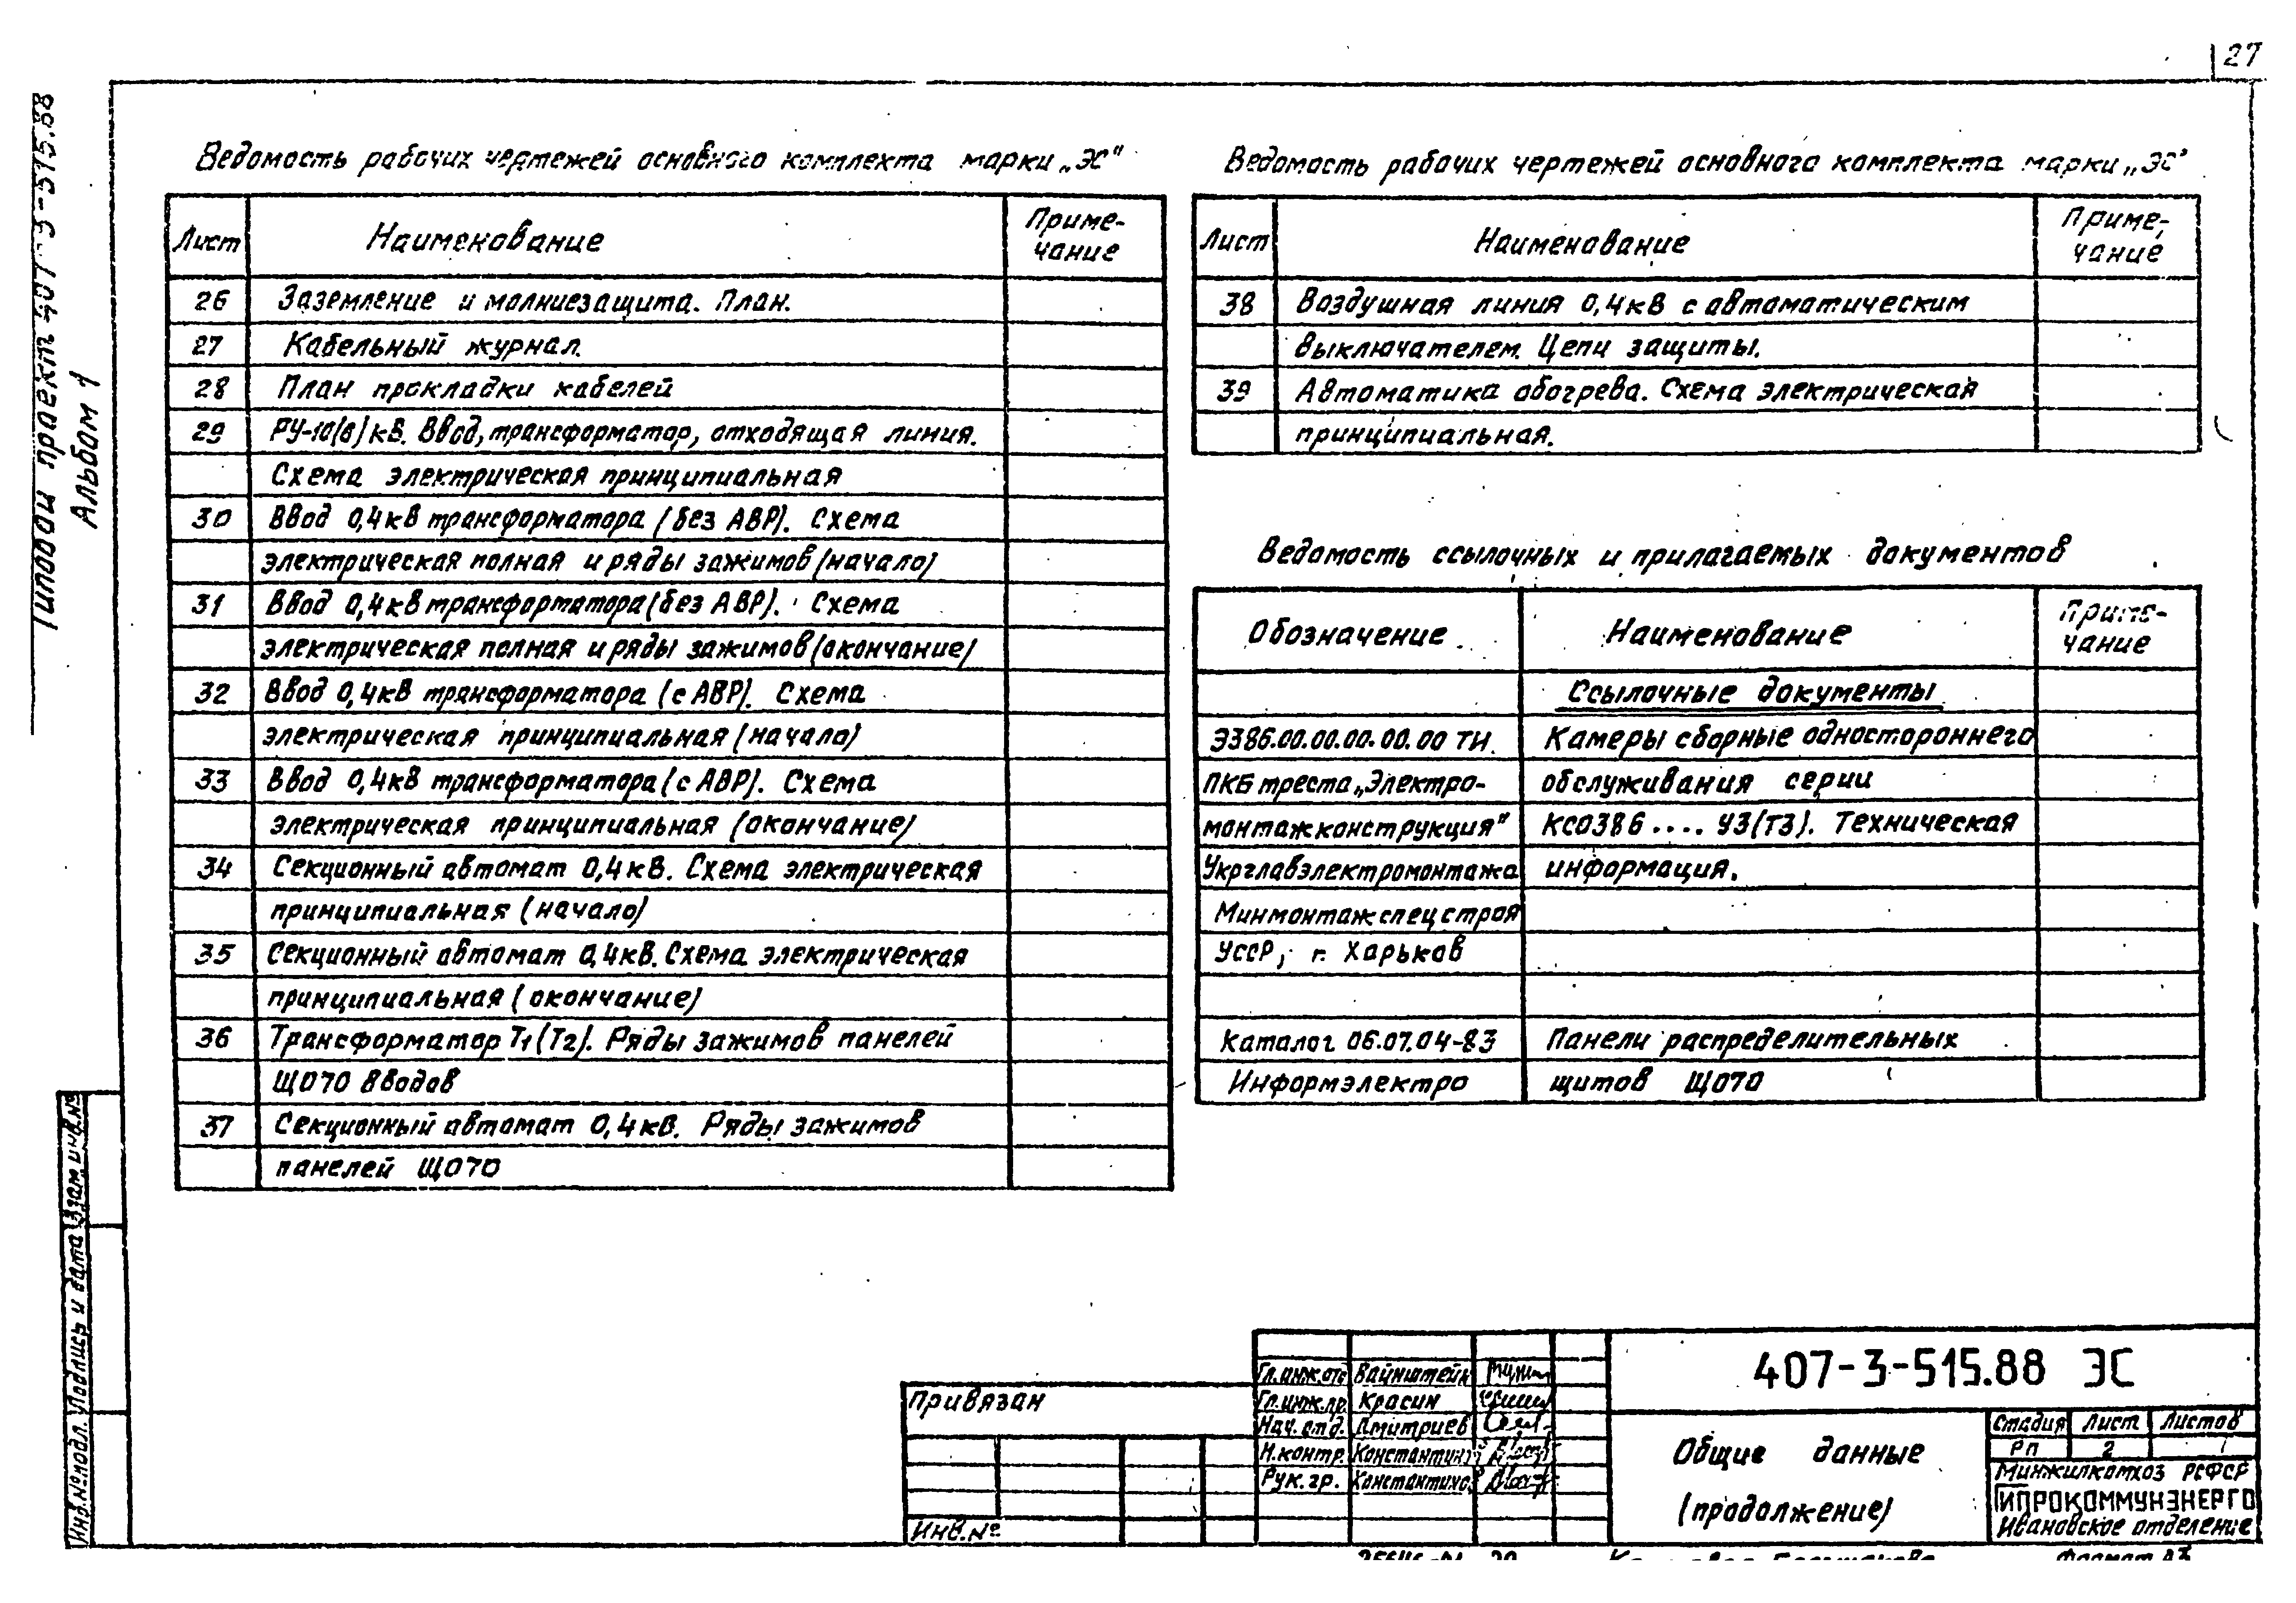 27
Типовой проект 407-3-515.88
Альбом 1
Ведомость рабочих чертежей основного комплекта марки „ЭС"
Лист Наименование Приме-
чание
26 Заземление и молниезащита. План.
27 Кабельный журнал.
28 План прокладки кабелей
29 РУ-10(6)кВ. Ввод, трансформатор, отходящая линия.
Схема электрическая принципиальная
30 Ввод 0,4кВ трансформатора (без АВР). Схема
электрическая полная и ряды зажимов (начало)
31 Ввод 0,4кВ трансформатора (без АВР). Схема
электрическая полная и ряды зажимов (окончание)
32 Ввод 0,4кВ трансформатора (с АВР). Схема
электрическая принципиальная (начало)
33 Ввод 0,4кВ трансформатора (с АВР). Схема
электрическая принципиальная (окончание)
34 Секционный автомат 0,4кВ. Схема электрическая
принципиальная (начало)
35 Секционный автомат 0,4кВ. Схема электрическая
принципиальная (окончание)
36 Трансформатор Т1(Т2). Ряды зажимов панелей
ЩО70 вводов
37 Секционный автомат 0,4кВ. Ряды зажимов
панелей ЩО70
Ведомость рабочих чертежей основного комплекта марки „ЭС"
Лист Наименование Приме-
чание
38 Воздушная линия 0,4кВ с автоматическим
выключателем. Цепи защиты.
39 Автоматика обогрева. Схема электрическая
принципиальная.
Ведомость ссылочных и прилагаемых документов
Обозначение Наименование Приме-
чание
Ссылочные документы
Э386.00.00.00.00.00 ТИ. Камеры сборные одностороннего
ПКБ треста „Электро- обслуживания серии
монтажконструкция" КСО386 .... У3(Т3). Техническая
Укрглавэлектромонтажа информация.
Минмонтажспецстроя
УССР, г. Харьков
Каталог 06.07.04-83 Панели распределительных
Информэлектро щитов ЩО70
Взам.инв.№
Подпись и дата
Инв.№подл.
Привязан
Инв.№
Гл.инж.отд Вайнштейн
Гл.инж.пр. Красин
Нач.отд. Дмитриев
Н.контр. Константинов
Рук.гр. Константинов
407-3-515.88 ЭС
Общие данные
(продолжение)
Стадия Лист Листов
РП 2
Минжилкомхоз РСФСР
ГИПРОКОММУНЭНЕРГО
Ивановское отделение
Формат А3